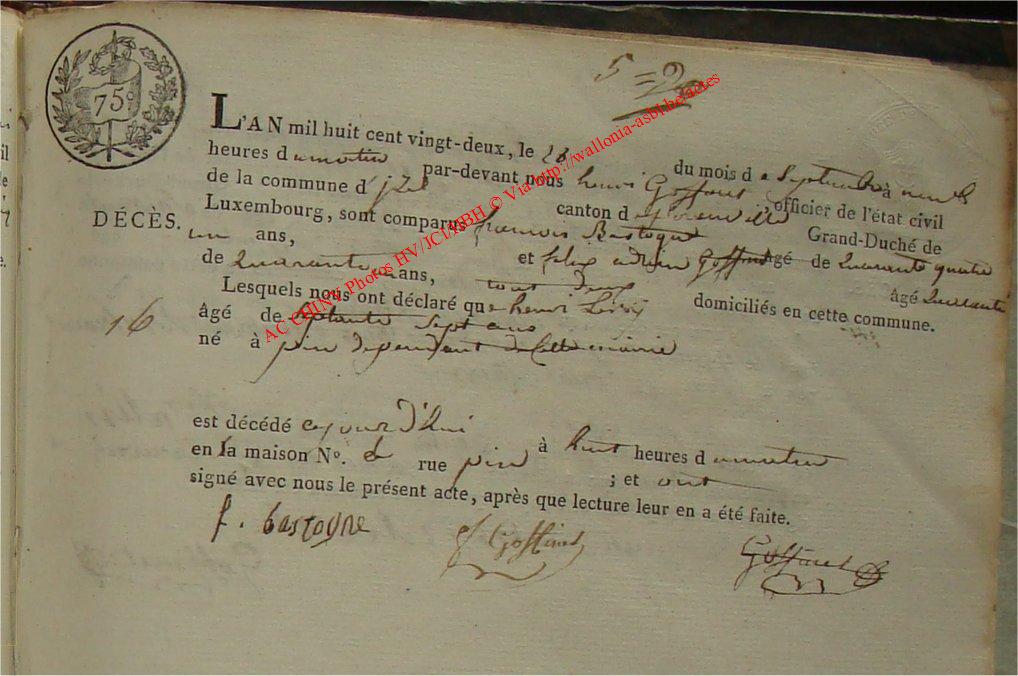 75 c
5 =
L'AN mil huit cent vingt-deux, le 23 du mois de Septembre à neuf
heures du matin par-devant nous henri Goffinet officier de l'état civil
de la commune d'izel canton de florenville Grand-Duché de
Luxembourg, sont comparus francois Bastogne âgé de Quarante quatre
DÉCÈS.
ans, et felix Goffinet âgé Quarante
de Quarante ans, tout deux domiciliés en cette commune.
Lesquels nous ont déclaré que henri
16
âgé de septante sept ans
né à pin dependant de Cette mairie
est décédé cejourd'hui à huit heures du matin
en la maison N°. rue pin ; et ont
signé avec nous le présent acte, après que lecture leur en a été faite.
f. bastogne
f Goffinet
Goffinet
AC CHINY Photos HV/JCI/RBH © Via http://wallonia-asbl.be/actes